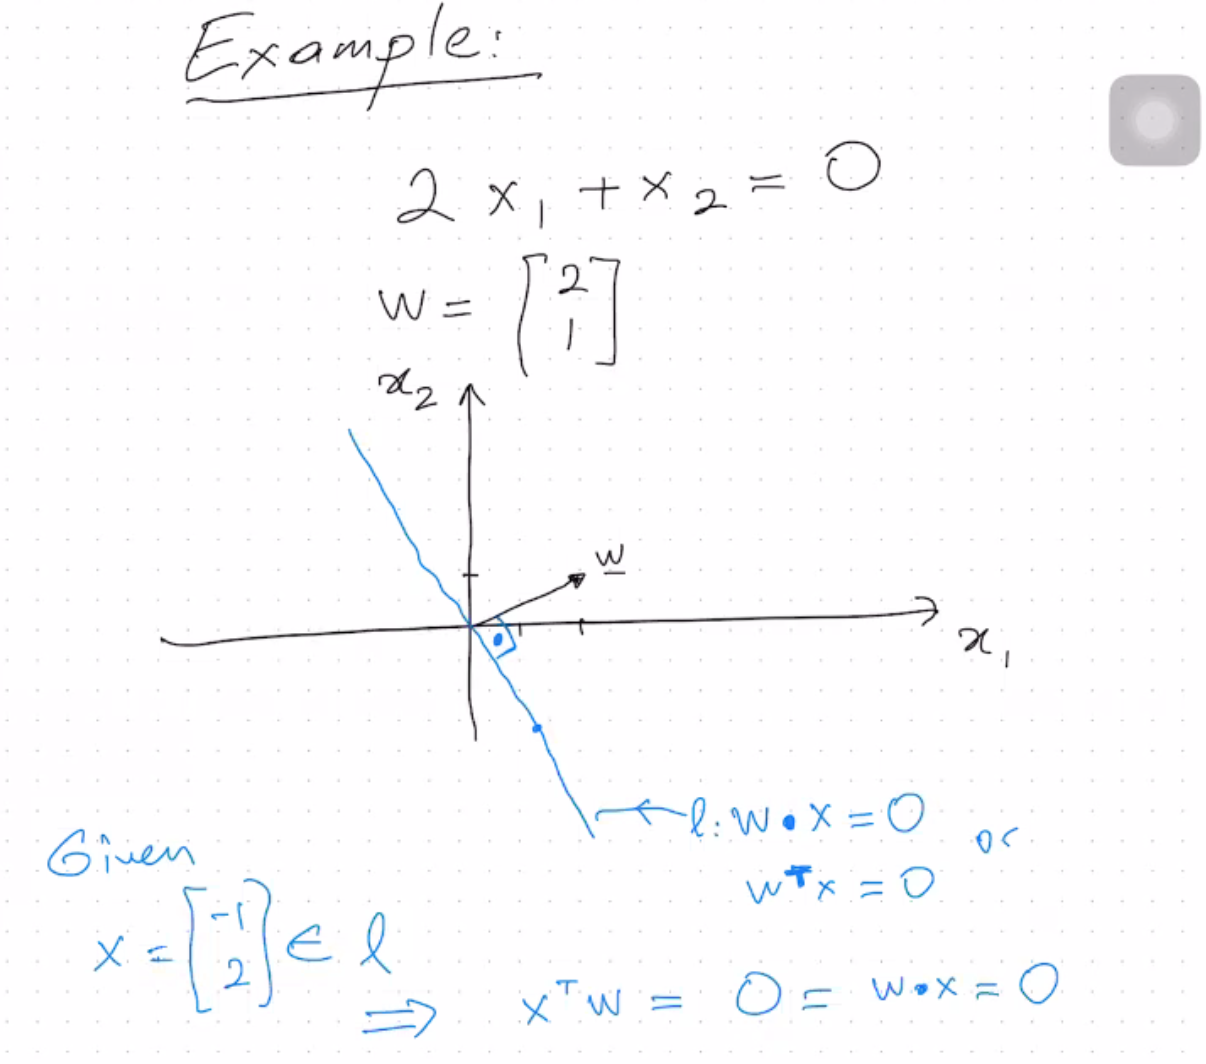 Example:
2 x₁ + x₂ = 0
W = [2
1]
x₂
w
x₁
l: W • X = 0 or
wᵀx = 0
Given
X = [-1
2] ∈ l
⇒ xᵀw = 0 = w•x = 0